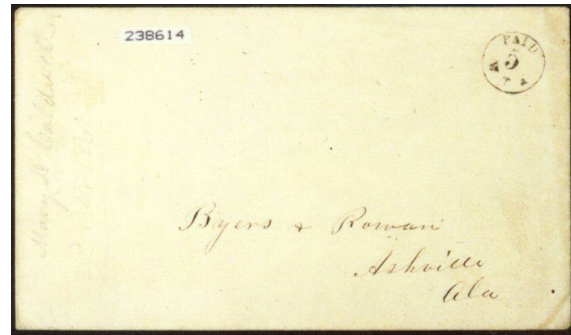 238614
PAID
5
Mary
Byers & Rowan
Ashville
Ala